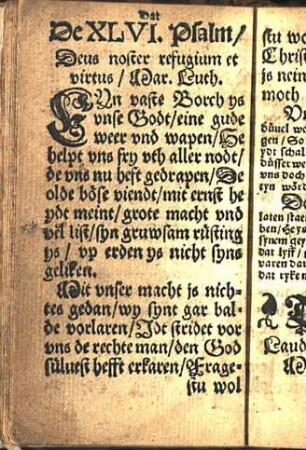 Dat
De XLVI. Psalm/
Deus noster refugium et
virtus/ Mar. Luth.
EYn vaste Borch ys
vnse Godt/ eine gude
weer vnd wapen/ He
helpt vns fry vth aller nodt/
de vns nu hefft gedrapen/ De
olde böse viendt/ mit ernst he
ydt meint/ grote macht vnd
vel list/ syn gruwsam rüsting
ys/ vp erden ys nicht syns
geliken.
Mit vnser macht js nich-
tes gedan/ wy synt gar bal-
de vorlaren/ Jdt stridet vor
vns de rechte man/ den God
süluest hefft erkaren/ Frage-
stu wol
stu wo
Christ
js nein
moth
Vn
düuel we
gen/ So
ydt schal
düsset we
vns doch
eyn wörd
De
laten stan
ben/ He ys
synen gei
dat lyff/
varen dar
dat ryke
Laud